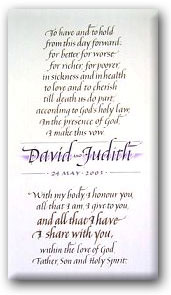 To have and to hold
from this day forward:
for better for worse
for richer, for poorer
in sickness and in health
to love and to cherish
till death us do part,
according to God's holy law,
In the presence of God,
I make this vow.
David and Judith
24 · MAY · 2003
"With my body I honour you,
all that I am I give to you,
and all that I have
I share with you,
within the love of God
Father, Son and Holy Spirit."